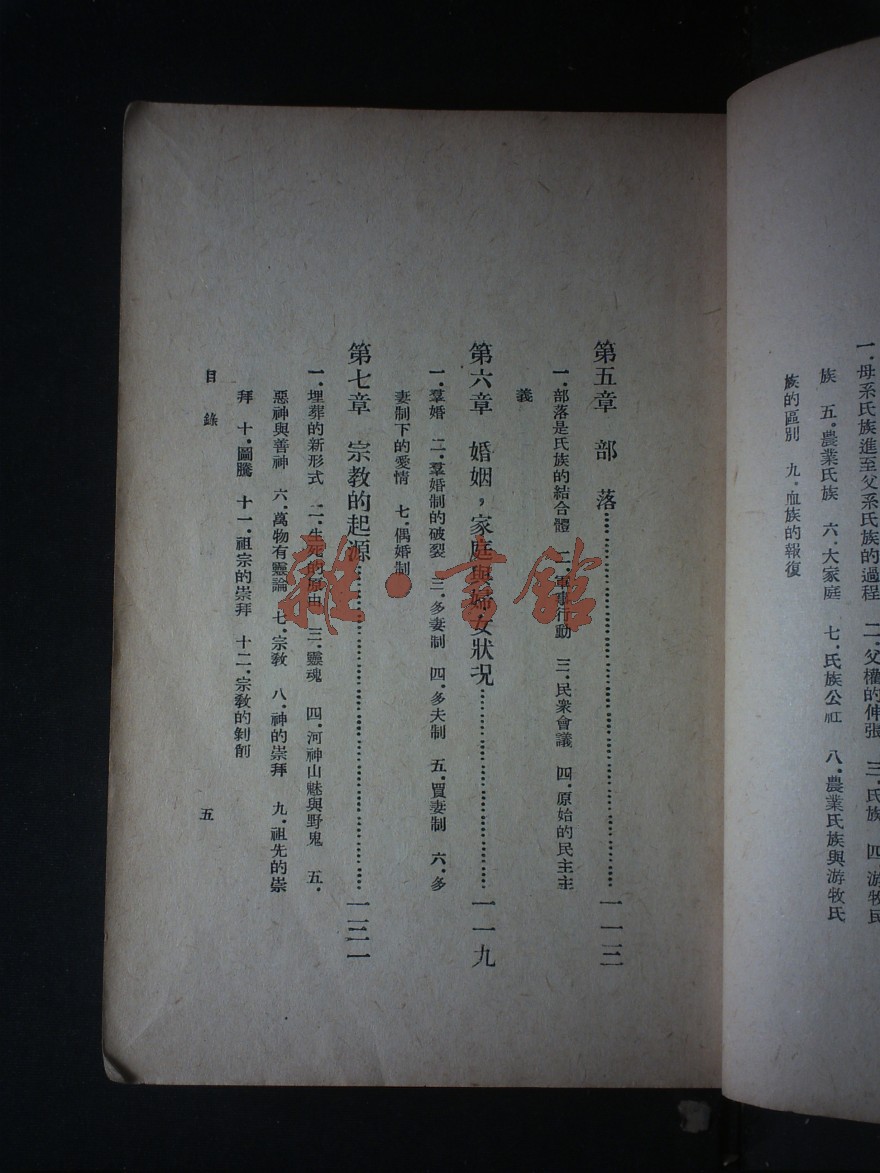 一．母系氏族進至父系氏族的過程　二．父權的伸張　三．氏族　四．游牧民
族　五．農業氏族　六．大家庭　七．氏族公社　八．農業氏族與游牧氏
族的區別　九．血族的報復
第五章　部　落……一一三
一．部落是氏族的結合體　二．軍事行動　三．民衆會議　四．原始的民主主
義
第六章　婚姻，家庭與婦女狀況……一一九
一．羣婚　二．羣婚制的破裂　三．多妻制　四．多夫制　五．買妻制　六．多
妻制下的愛情　七．偶婚制
第七章　宗教的起源……一三一
一．埋葬的新形式　二．生死的原由　三．靈魂　四．河神山魅與野鬼　五．
惡神與善神　六．萬物有靈論　七．宗敎　八．神的崇拜　九．祖先的崇
拜　十．圖騰　十一．祖宗的崇拜　十二．宗敎的剝削
目　錄
五
雜·書館